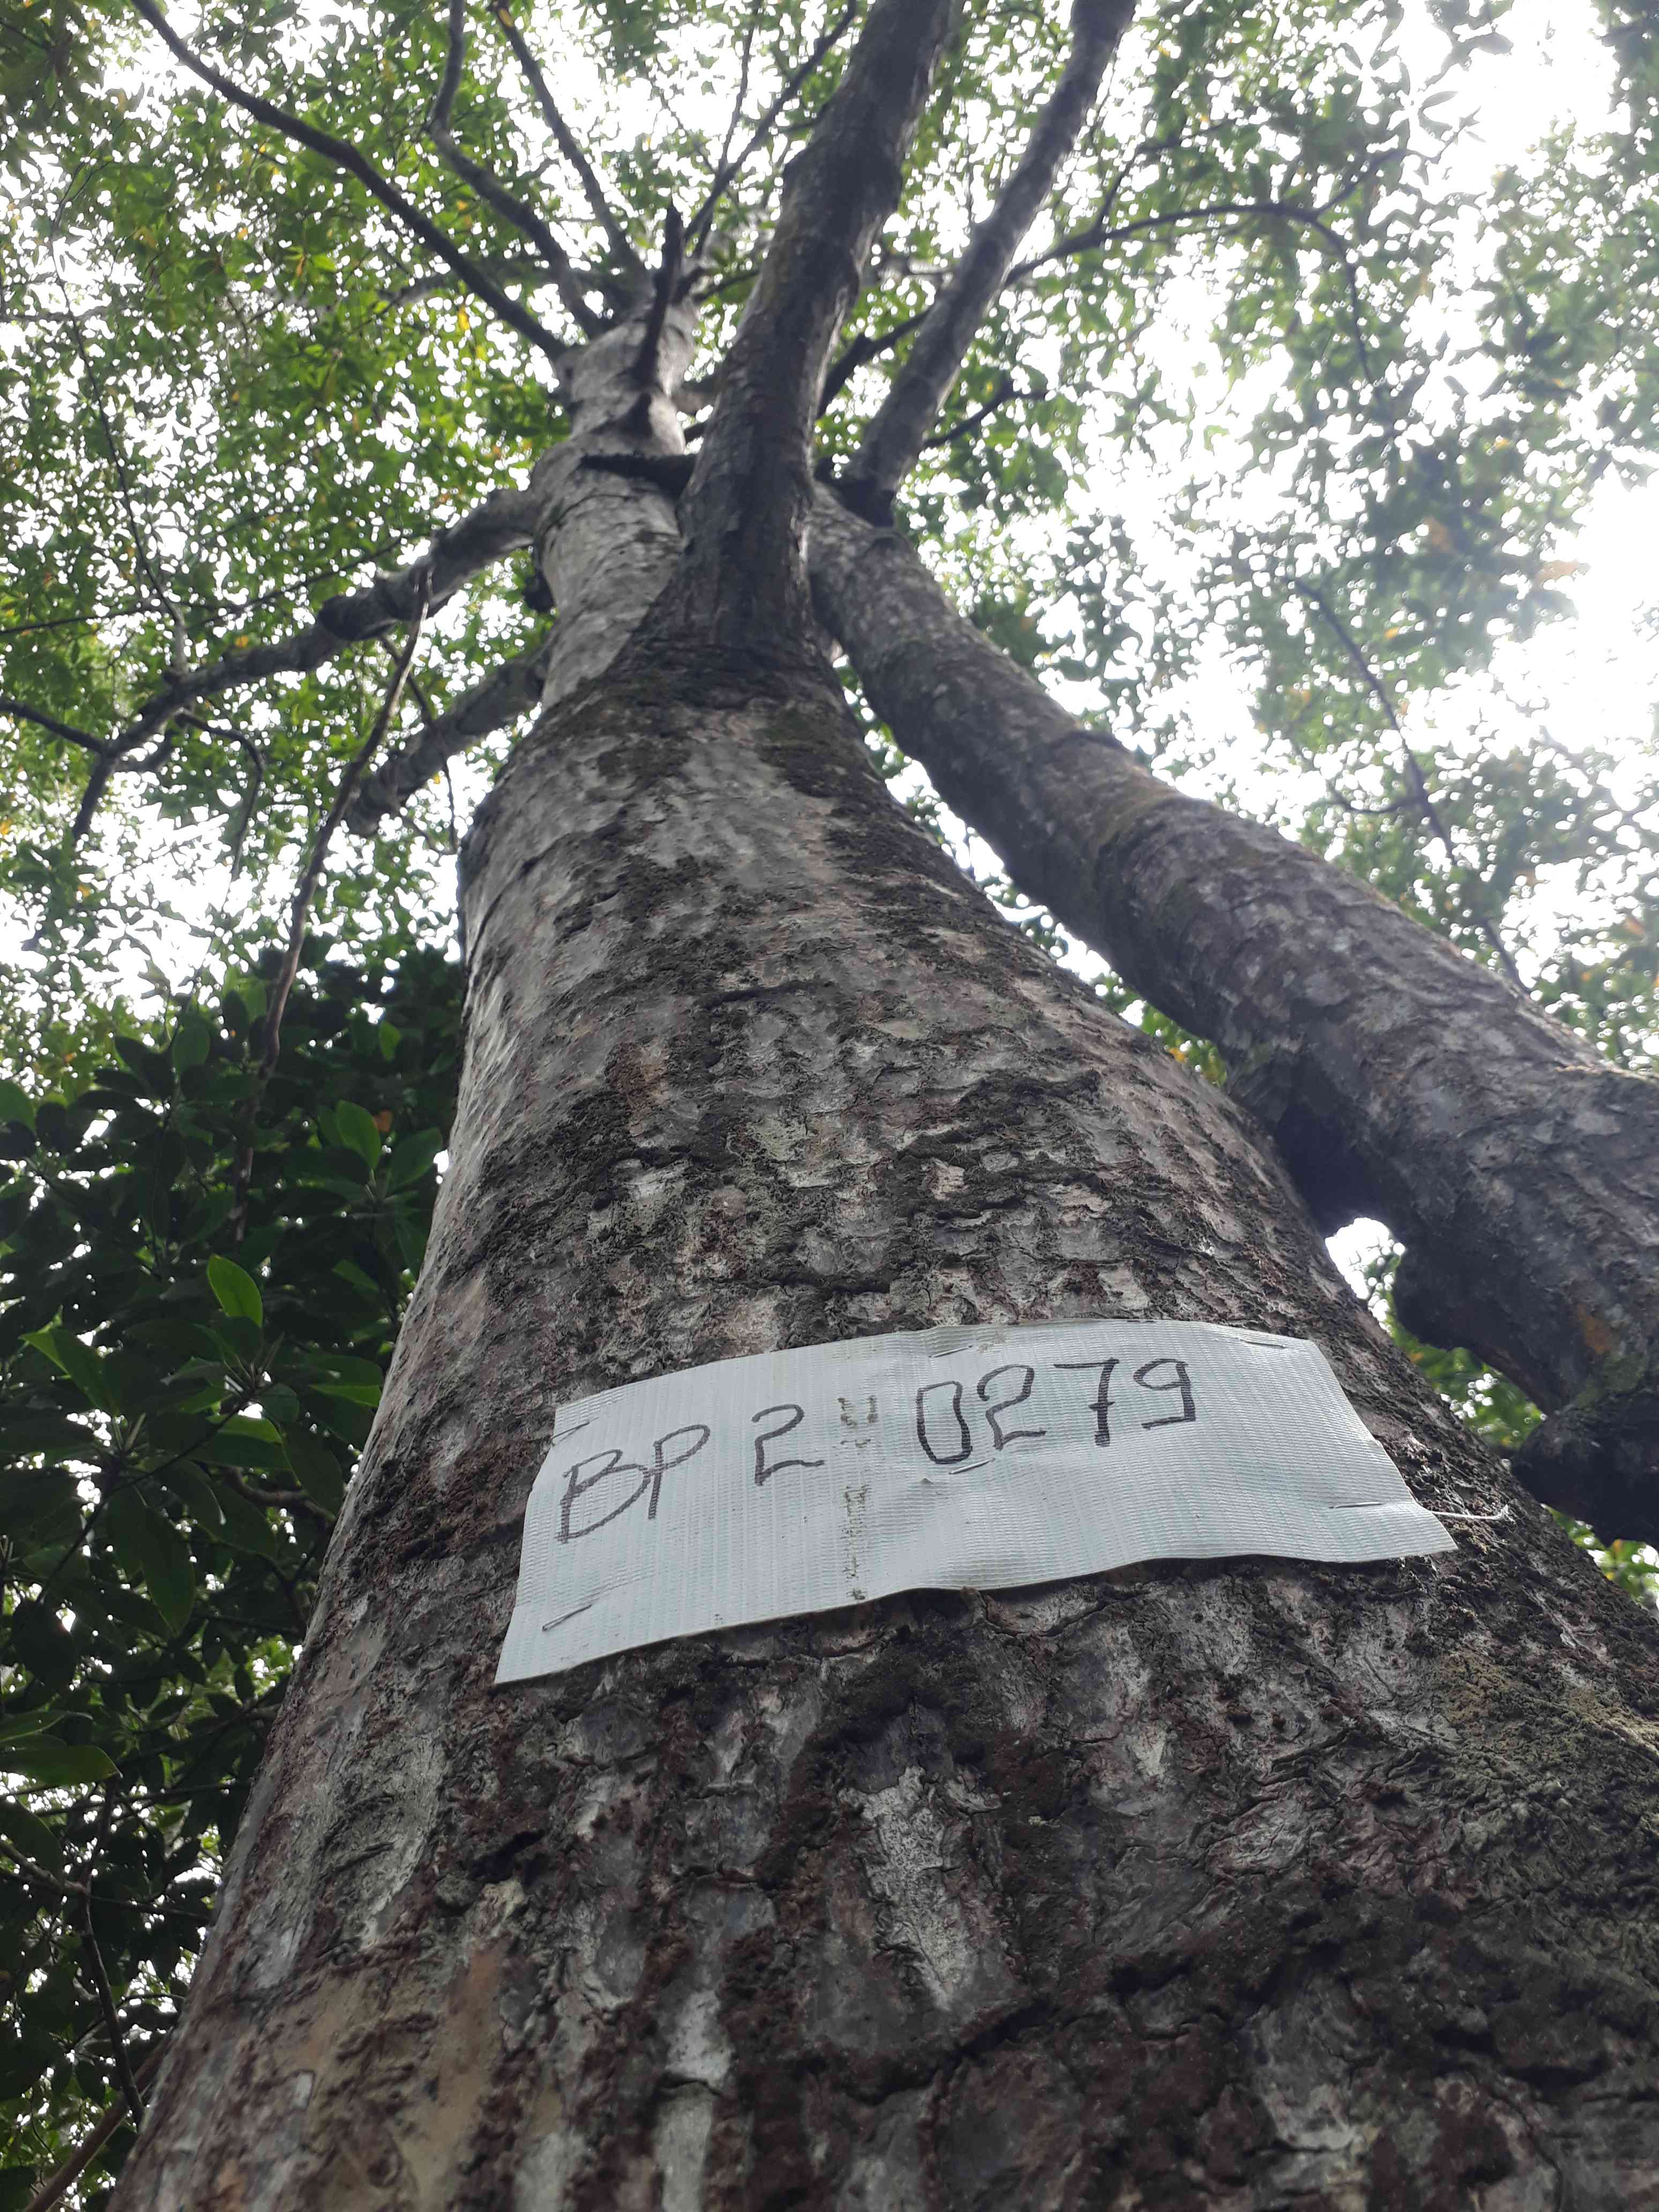 BP 2 0279